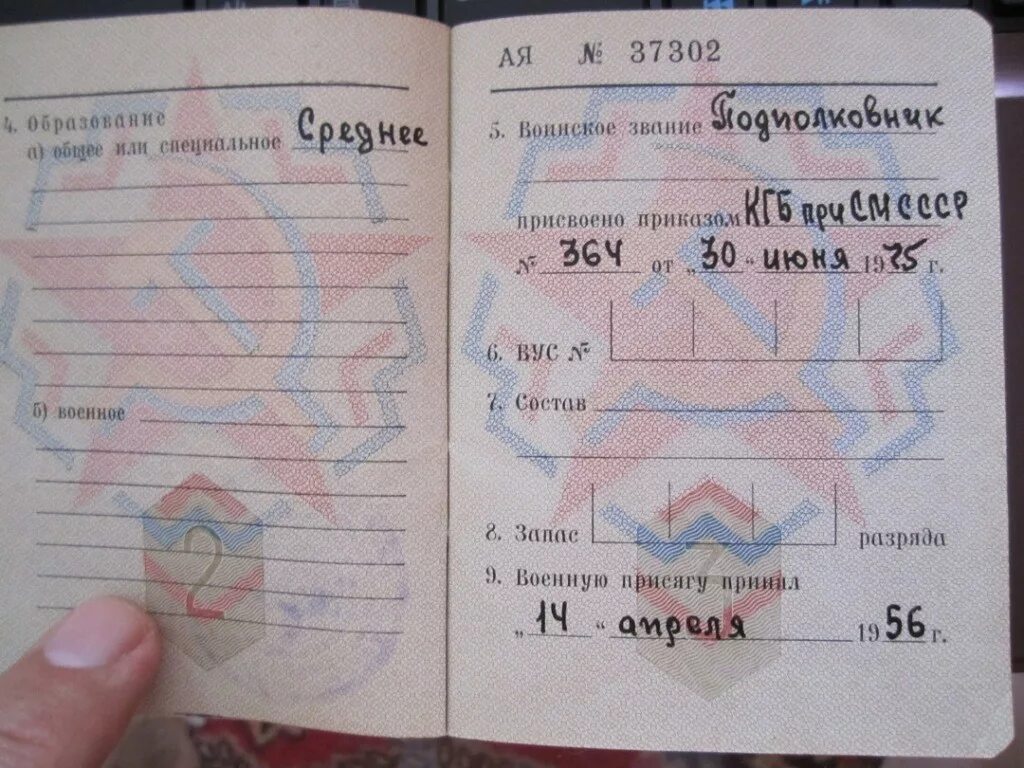 4. Образование
а) общее или специальное Среднее
б) военное
2
АЯ № 37302
5. Воинское звание Подполковник
присвоено приказом КГБ при СМ СССР
№ 364 от „30“ июня 1975 г.
6. ВУС №
7. Состав
8. Запас разряда
9. Военную присягу принял
„14“ апреля 1956 г.